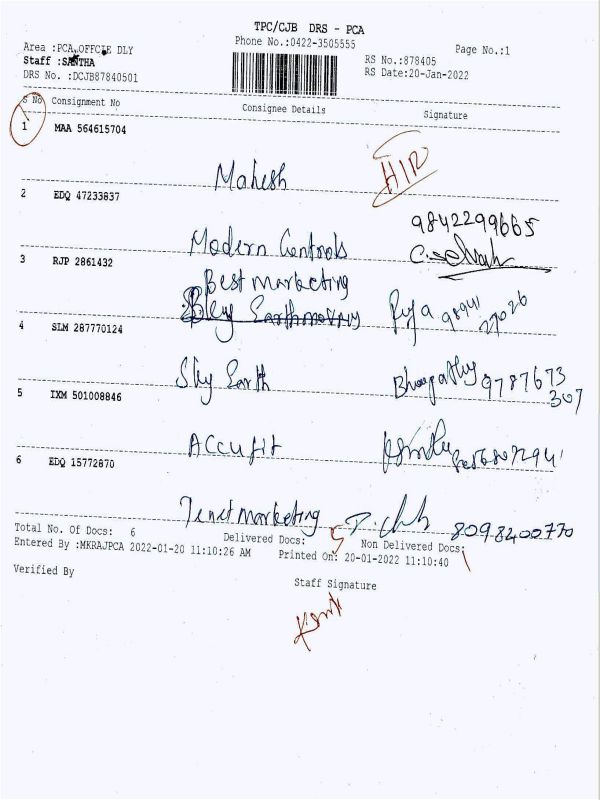 TPC/CJB DRS - PCA
Phone No.:0422-3505555
Page No.:1
Area :PCA,OFFCIE DLY
Staff :SANTHA
DRS No. :DCJB87840501
RS No.:878405
RS Date:20-Jan-2022
S No Consignment No Consignee Details Signature
1 MAA 564615704
Mahesh HIR
2 EDQ 47233837
9842299665
Modern Controls C.selvah
3 RJP 2861432
Best marketing
Sky Earthmoving Puja 98941
27026
4 SLM 287770124
Sky Earth Bhagathy 9787673
307
5 IXM 501008846
Accufit
6 EDQ 15772870
Tenet marketing 8098400770
Total No. Of Docs: 6 Delivered Docs: 5 Non Delivered Docs: 1
Entered By :MKRAJPCA 2022-01-20 11:10:26 AM Printed On: 20-01-2022 11:10:40
Verified By
Staff Signature